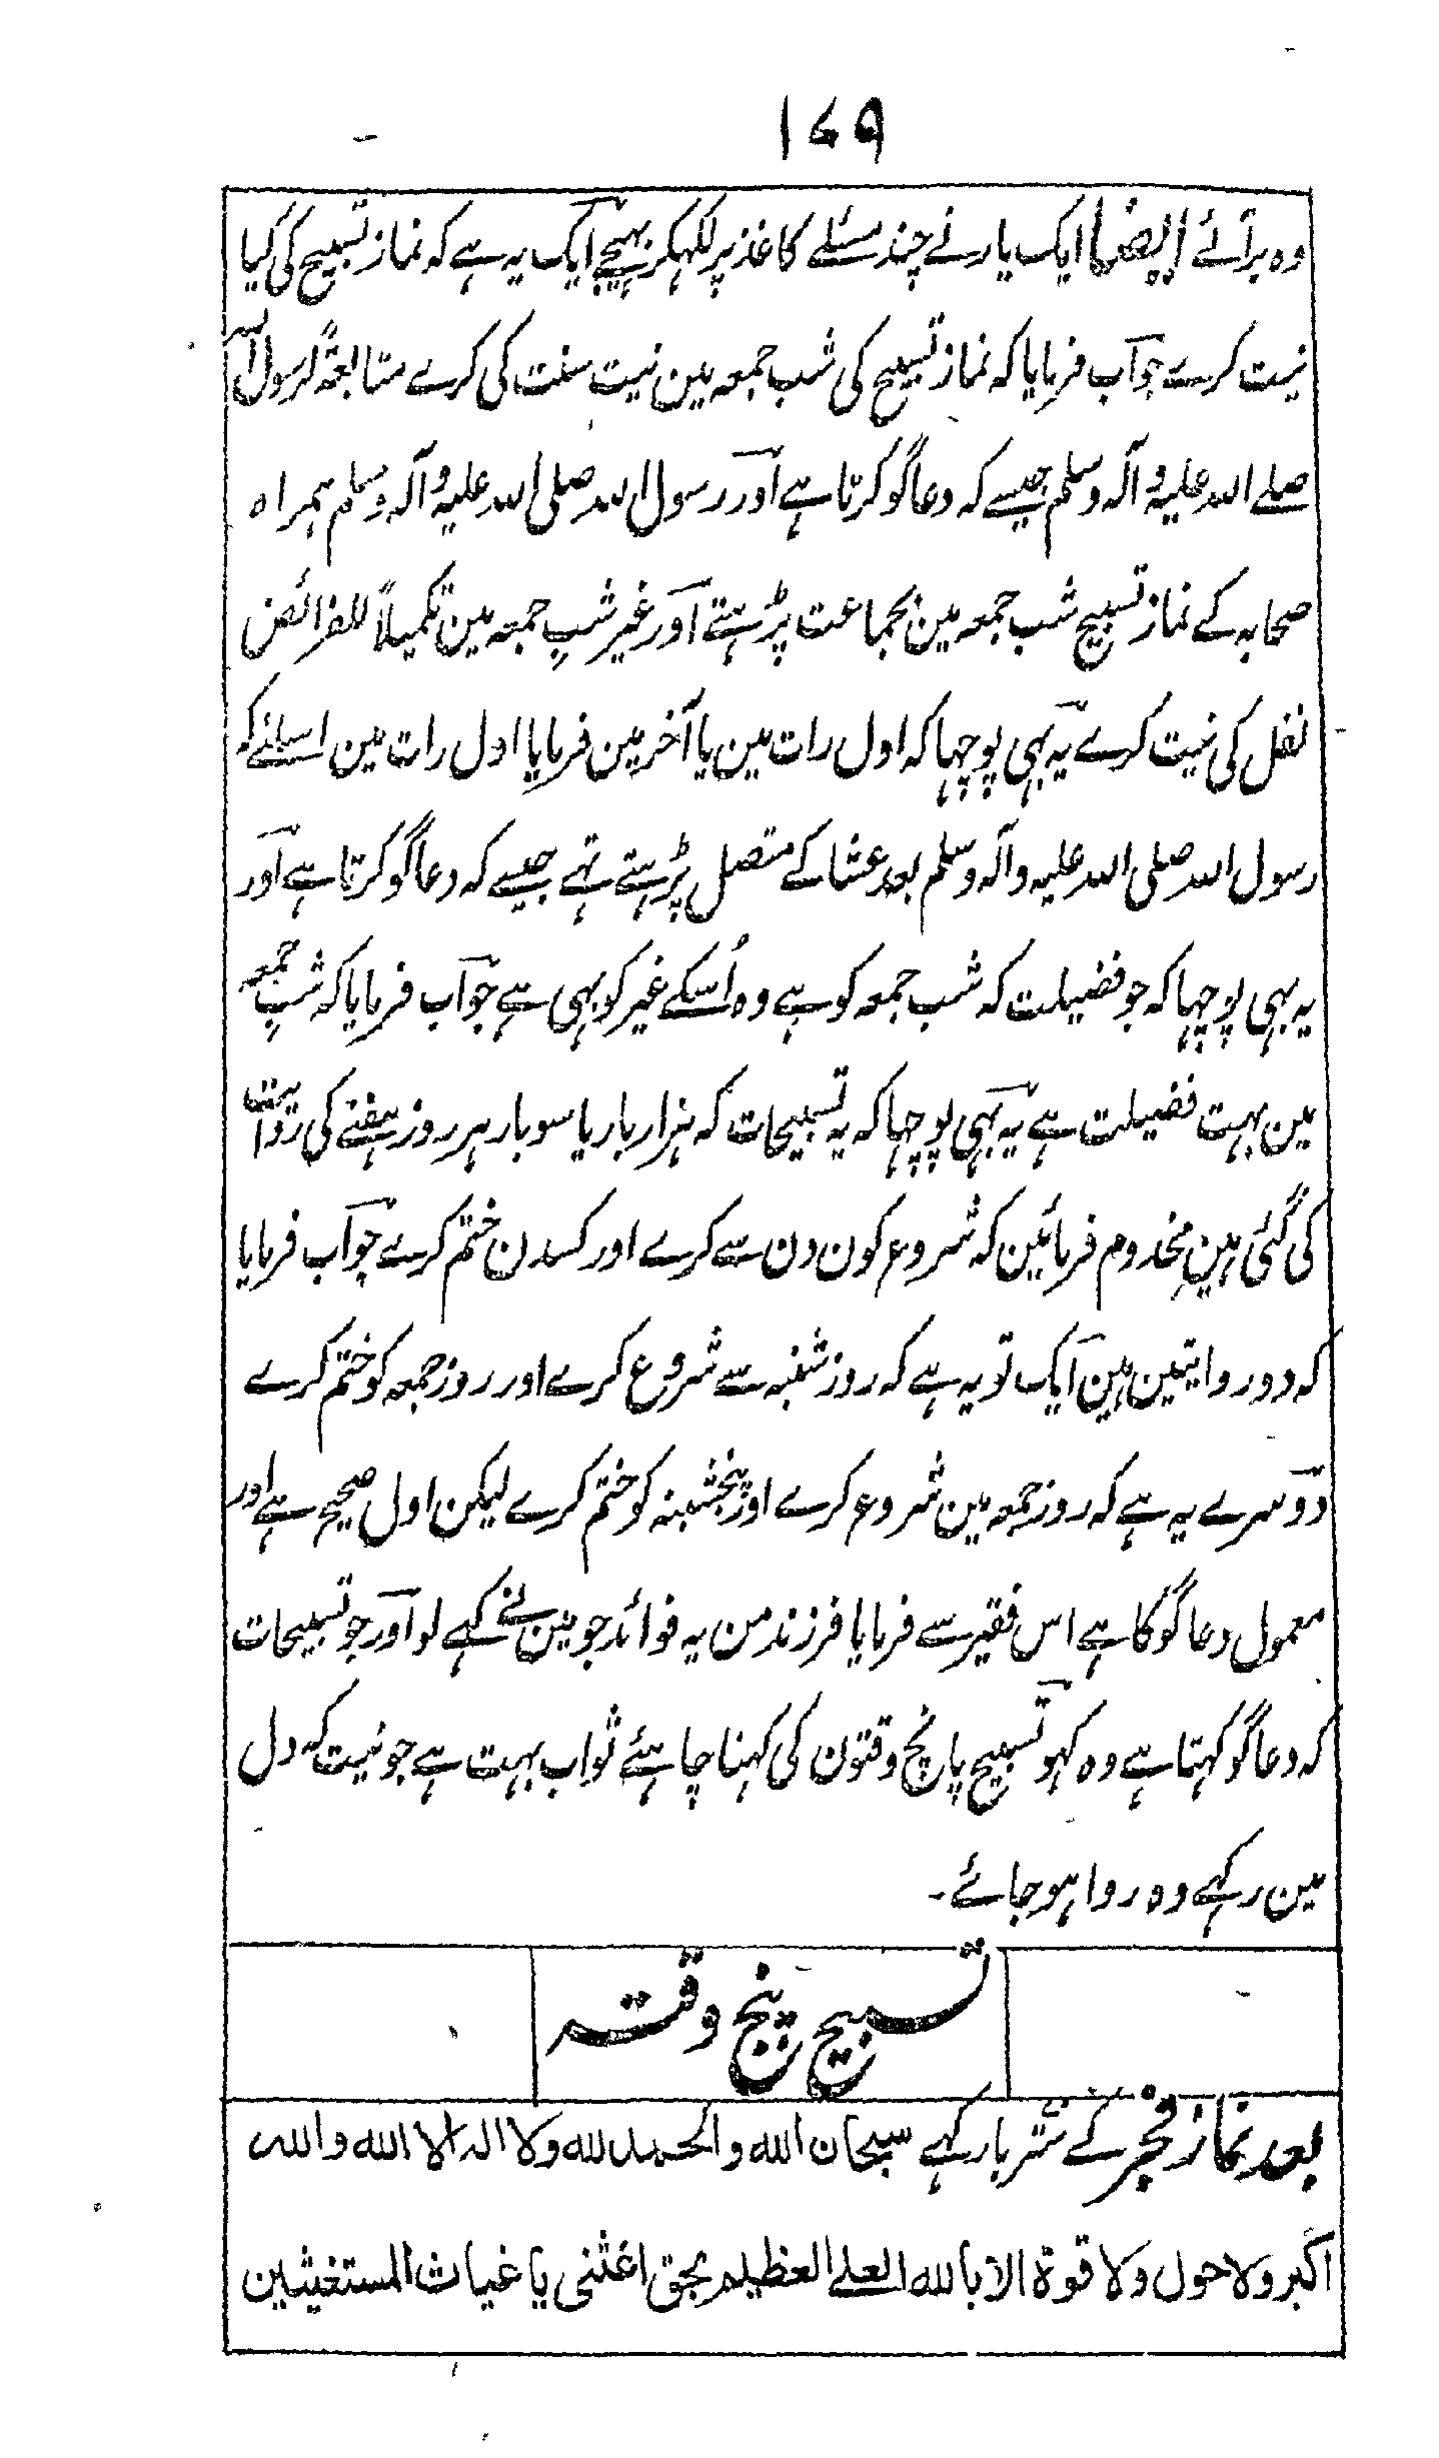 ۱۷۹
وہ برآئے ایضاً ایک یار نے چند مسئلے کاغذ پر لکہکر بہیجے ایک یہ ہے کہ نماز تسبیح کی کیا
نیت کرے جوآب فرمایا کہ نماز تسبیح کی شب جمعہ مین نیت سنت کی کرے متابعۃً لرسول اللہ
صلے اللہ علیہ وآلہ وسلم جیسے کہ دعاگو کرتا ہے اور رسول اللہ صلی اللہ علیہ وآلہ وسلم ہمراہ
صحابہ کے نماز تسبیح شب جمعہ مین بجماعت پڑہتے اور غیر شبِ جمعہ مین تکمیلاً للفرائض
نفل کی نیت کرے یہ بہی پوچہا کہ اول رات مین یا آخر مین فرمایا اول رات مین اسلئے کہ
رسول اللہ صلی اللہ علیہ وآلہ وسلم بعد عشا کے متصل پڑہتے تہے جیسے کہ دعاگو کرتا ہے اور
یہ بہی پوچہا کہ جو فضیلت کہ شب جمعہ کو ہے وہ اُسکے غیر کو بہی ہے جوآب فرمایا کہ شبِ جمعہ
مین بہت فضیلت ہے یہ بہی پوچہا کہ یہ تسبیحات کہ ہزار بار یا سو بار ہر روز ہفتے کی روایت
کی گئی ہین مخدوم فرمائین کہ شروع کون دن سے کرے اور کسدن ختم کرے جوآب فرمایا
کہ دو روایتین ہین ایک تو یہ ہے کہ روز شنبہ سے شروع کرے اور روز جمعہ کو ختم کرے
دوسرے یہ ہے کہ روز جمعہ مین شروع کرے اور پنجشنبہ کو ختم کرے لیکن اول صحیح ہے اور
معمول دعاگو کا ہے اس فقیر سے فرمایا فرزند من یہ فوائد جو مین نے کہے لو اور جو تسبیحات
کہ دعاگو کہتا ہے وہ کہو تسبیح پانچ وقتون کی کہنا چاہئے ثواب بہت ہے جو نیت کہ دل
مین رکہے وہ روا ہو جائے۔
تسبیح پنج وقتہ
بعد نماز فجر کے ستر بار کہے سبحان الله والحمد لله ولا اله الا الله والله
اکبر ولا حول ولا قوة الا بالله العلے العظیم بحق اغثنی یا غیاث المستغیثین